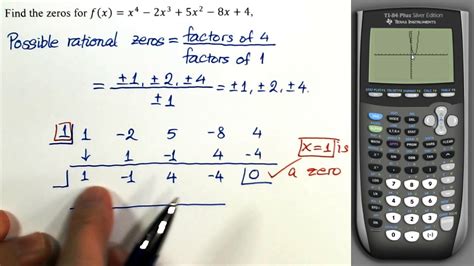 Find the zeros for f(x) = x⁴ − 2x³ + 5x² − 8x + 4,
Possible rational zeros = factors of 4 / factors of 1
= ±1, ±2, ±4 / ±1 = ±1, ±2, ±4.
1 | 1 -2 5 -8 4
↓ 1 -1 4 -4
1 -1 4 -4 0 x=1 is
a zero
TI-84 Plus Silver Edition
TEXAS INSTRUMENTS